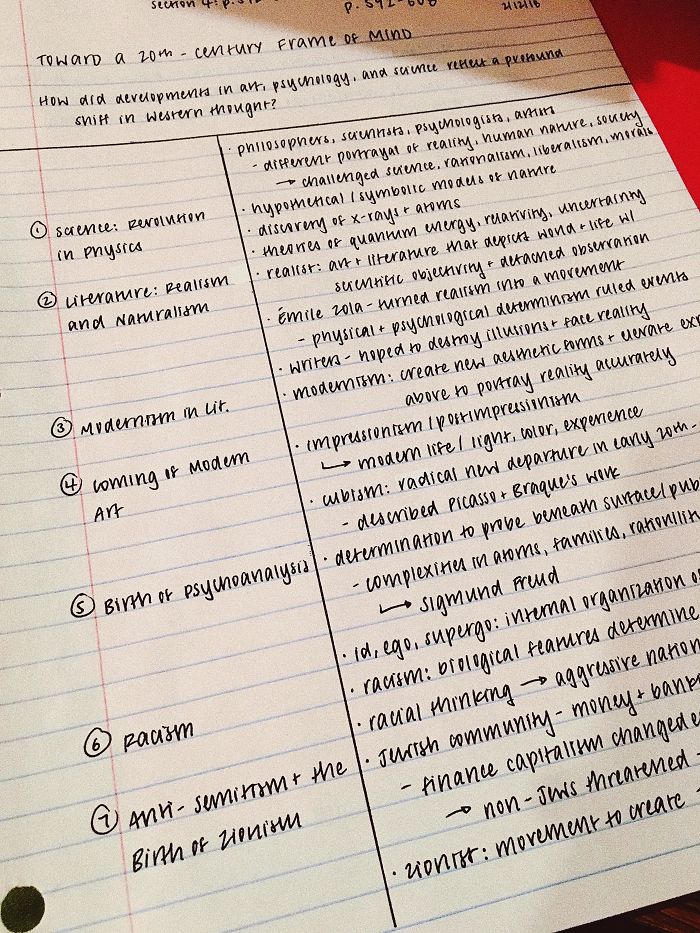 section 4: p.
p. 592-600
2/12/18
Toward a 20th-century Frame of Mind
How did developments in art, psychology, and science reflect a profound
shift in Western thought?
· philosophers, scientists, psychologists, artists
- different portrayal of reality, human nature, society
→ challenged science, rationalism, liberalism, morals
· hypothetical / symbolic models of nature
① Science: Revolution
in Physics
· discovery of x-rays + atoms
· theories of quantum energy, relativity, uncertainty
② Literature: Realism
and Naturalism
· realist: art + literature that depicts world + life w/
scientific objectivity + detached observation
· Émile Zola - turned realism into a movement
- physical + psychological determinism ruled events
· writers - hoped to destroy illusions + face reality
③ Modernism in Lit.
· modernism: create new aesthetic forms + elevate
above to portray reality accurately
④ Coming of Modern
Art
· impressionism / postimpressionism
↳ modern life / light, color, experience
· cubism: radical new departure in early 20th-
- described Picasso + Braque's work
⑤ Birth of Psychoanalysis
· determination to probe beneath surface/
- complexities in atoms, families,
↳ Sigmund Freud
· id, ego, supergo: internal organization
⑥ Racism
· racism: biological features determine
· racial thinking → aggressive
⑦ Anti-semitism + the
Birth of Zionism
· Jewish community - money +
- finance capitalism changed
→ non-Jews threatened -
· zionist: movement to create -